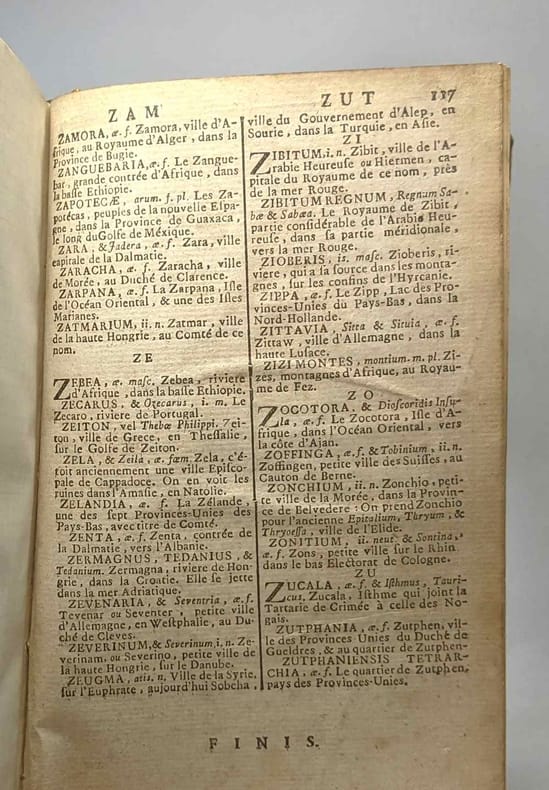 ZAM
ZUT 117
ZAMORA, æ. f. Zamora, ville d'A-
frique, au Royaume d'Alger, dans la
Province de Bugie.
ZANGUEBARIA, æ. f. Le Zangue-
bar, grande contrée d'Afrique, dans
la baſſe Ethiopie.
ZAPOTECÆ, arum. f. pl. Les Za-
potécas, peuples de la nouvelle Eſpa-
gne, dans la Province de Guaxaca,
le long du Golfe de Méxique.
ZARA, & Jadera, æ. f. Zara, ville
capitale de la Dalmatie.
ZARACHA, æ. f. Zaracha, ville
de Morée, au Duché de Clarence.
ZARPANA, æ. f. La Zarpana, Iſle
de l'Océan Oriental, & une des Iſles
Marianes.
ZATMARIUM, ii. n. Zatmar, ville
de la haute Hongrie, au Comté de ce
nom.
ZE
ZEBEA, æ. maſc. Zebea, riviere
d'Afrique, dans la baſſe Ethiopie.
ZECARUS, & Ozecarus, i. m. Le
Zecaro, riviere de Portugal.
ZEITON, vel Thebæ Philippi. Zei-
ton, ville de Grece, en Theſſalie,
ſur le Golfe de Zeiton.
ZELA, & Zeila, æ. fœm. Zela, c'é-
toit anciennement une ville Epiſco-
pale de Cappadoce. On en voit les
ruines dans l'Amaſie, en Natolie.
ZELANDIA, æ. f. La Zélande,
une des ſept Provinces-Unies des
Pays-Bas, avec titre de Comté.
ZENTA, æ. f. Zenta, contrée de
la Dalmatie, vers l'Albanie.
ZERMAGNUS, TEDANIUS, &
Tedanium. Zermagna, riviere de Hon-
grie, dans la Croatie. Elle ſe jette
dans la mer Adriatique.
ZEVENARIA, & Seventria, æ. f.
Tevenar ou Seventer, petite ville
d'Allemagne, en Weſtphalie, au Du-
ché de Cleves.
ZEVERINUM, & Severinum, i. n. Ze-
verinam, ou Severino, petite ville de
la haute Hongrie, ſur le Danube.
ZEUGMA, atis. n. Ville de la Syrie,
ſur l'Euphrate, aujourd'hui Sobcha,
ville du Gouvernement d'Alep, en
Sourie, dans la Turquie, en Aſie.
ZI
ZIBITUM, i. n. Zibit, ville de l'A-
rabie Heureuſe ou Hiermen, ca-
pitale du Royaume de ce nom, près
de la mer Rouge.
ZIBITUM REGNUM, Regnum Sa-
bæ & Sabæa. Le Royaume de Zibit,
partie conſidérable de l'Arabie Heu-
reuſe, dans ſa partie méridionale,
vers la mer Rouge.
ZIOBERIS, is. maſc. Zioberis, ri-
viere, qui a ſa ſource dans les monta-
gnes, ſur les confins de l'Hyrcanie.
ZIPPA, æ. f. Le Zipp, Lac des Pro-
vinces-Unies du Pays-Bas, dans la
Nord-Hollande.
ZITTAVIA, Sitta & Situia, æ. f.
Zittaw, ville d'Allemagne, dans la
haute Luſace.
ZIZI MONTES, montium. m. pl. Zi-
zes, montagnes d'Afrique, au Royau-
me de Fez.
ZO
ZOCOTORA, & Dioſcoridis Inſu-
la, æ. f. Le Zocotora, Iſle d'A-
frique, dans l'Océan Oriental, vers
la côte d'Ajan.
ZOFFINGA, æ. f. & Tobinium, ii. n.
Zoffingen, petite ville des Suiſſes, au
Canton de Berne.
ZONCHIUM, ii. n. Zonchio, peti-
te ville de la Morée, dans la Provin-
ce de Belvedere: On prend Zonchio
pour l'ancienne Epitalium, Thryum, &
Thryoeſſa, ville de l'Elide.
ZONITIUM, ii. neut. & Sontina,
æ. f. Zons, petite ville ſur le Rhin
dans le bas Electorat de Cologne.
ZU
ZUCALA, æ. f. & Iſthmus, Tauri-
cus, Zucala, Iſthme qui joint la
Tartarie de Crimée à celle des No-
gais.
ZUTPHANIA, æ. f. Zutphen, vil-
le des Provinces Unies du Duché de
Gueldres, & au quartier de Zutphen.
ZUTPHANIENSIS TETRAR-
CHIA, æ. f. Le quartier de Zutphen,
pays des Provinces-Unies.
FINIS.